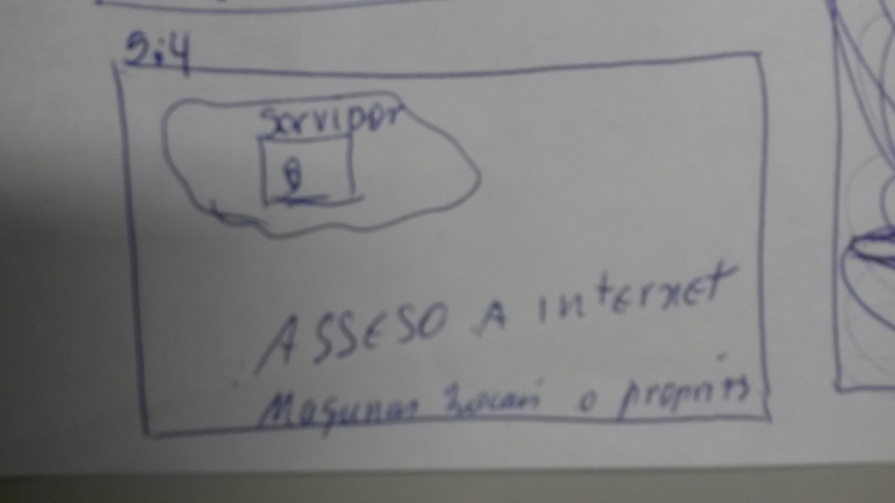 5:4
Servidor
ASSESO A internet
Maquinas locais o proprios